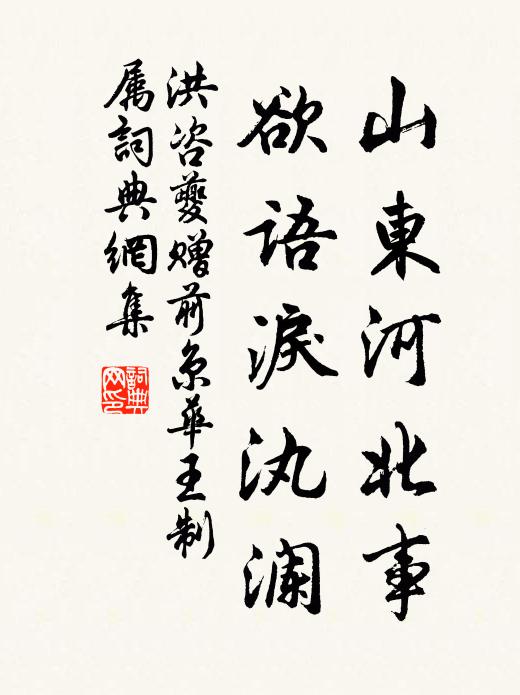 山東河北事
欲語淚汍瀾
洪咨夔贈前京華王制
属詞典網集
詞典网印